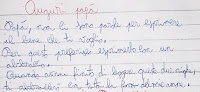 Auguri papà
Papà, non ho tante parole per esprimere
il bene che ti voglio.
Per questo preferisco esprimerlo con un
abbraccio.
Quando avrai finito di leggere queste due righe,
ti abbraccerò con tutta la forza